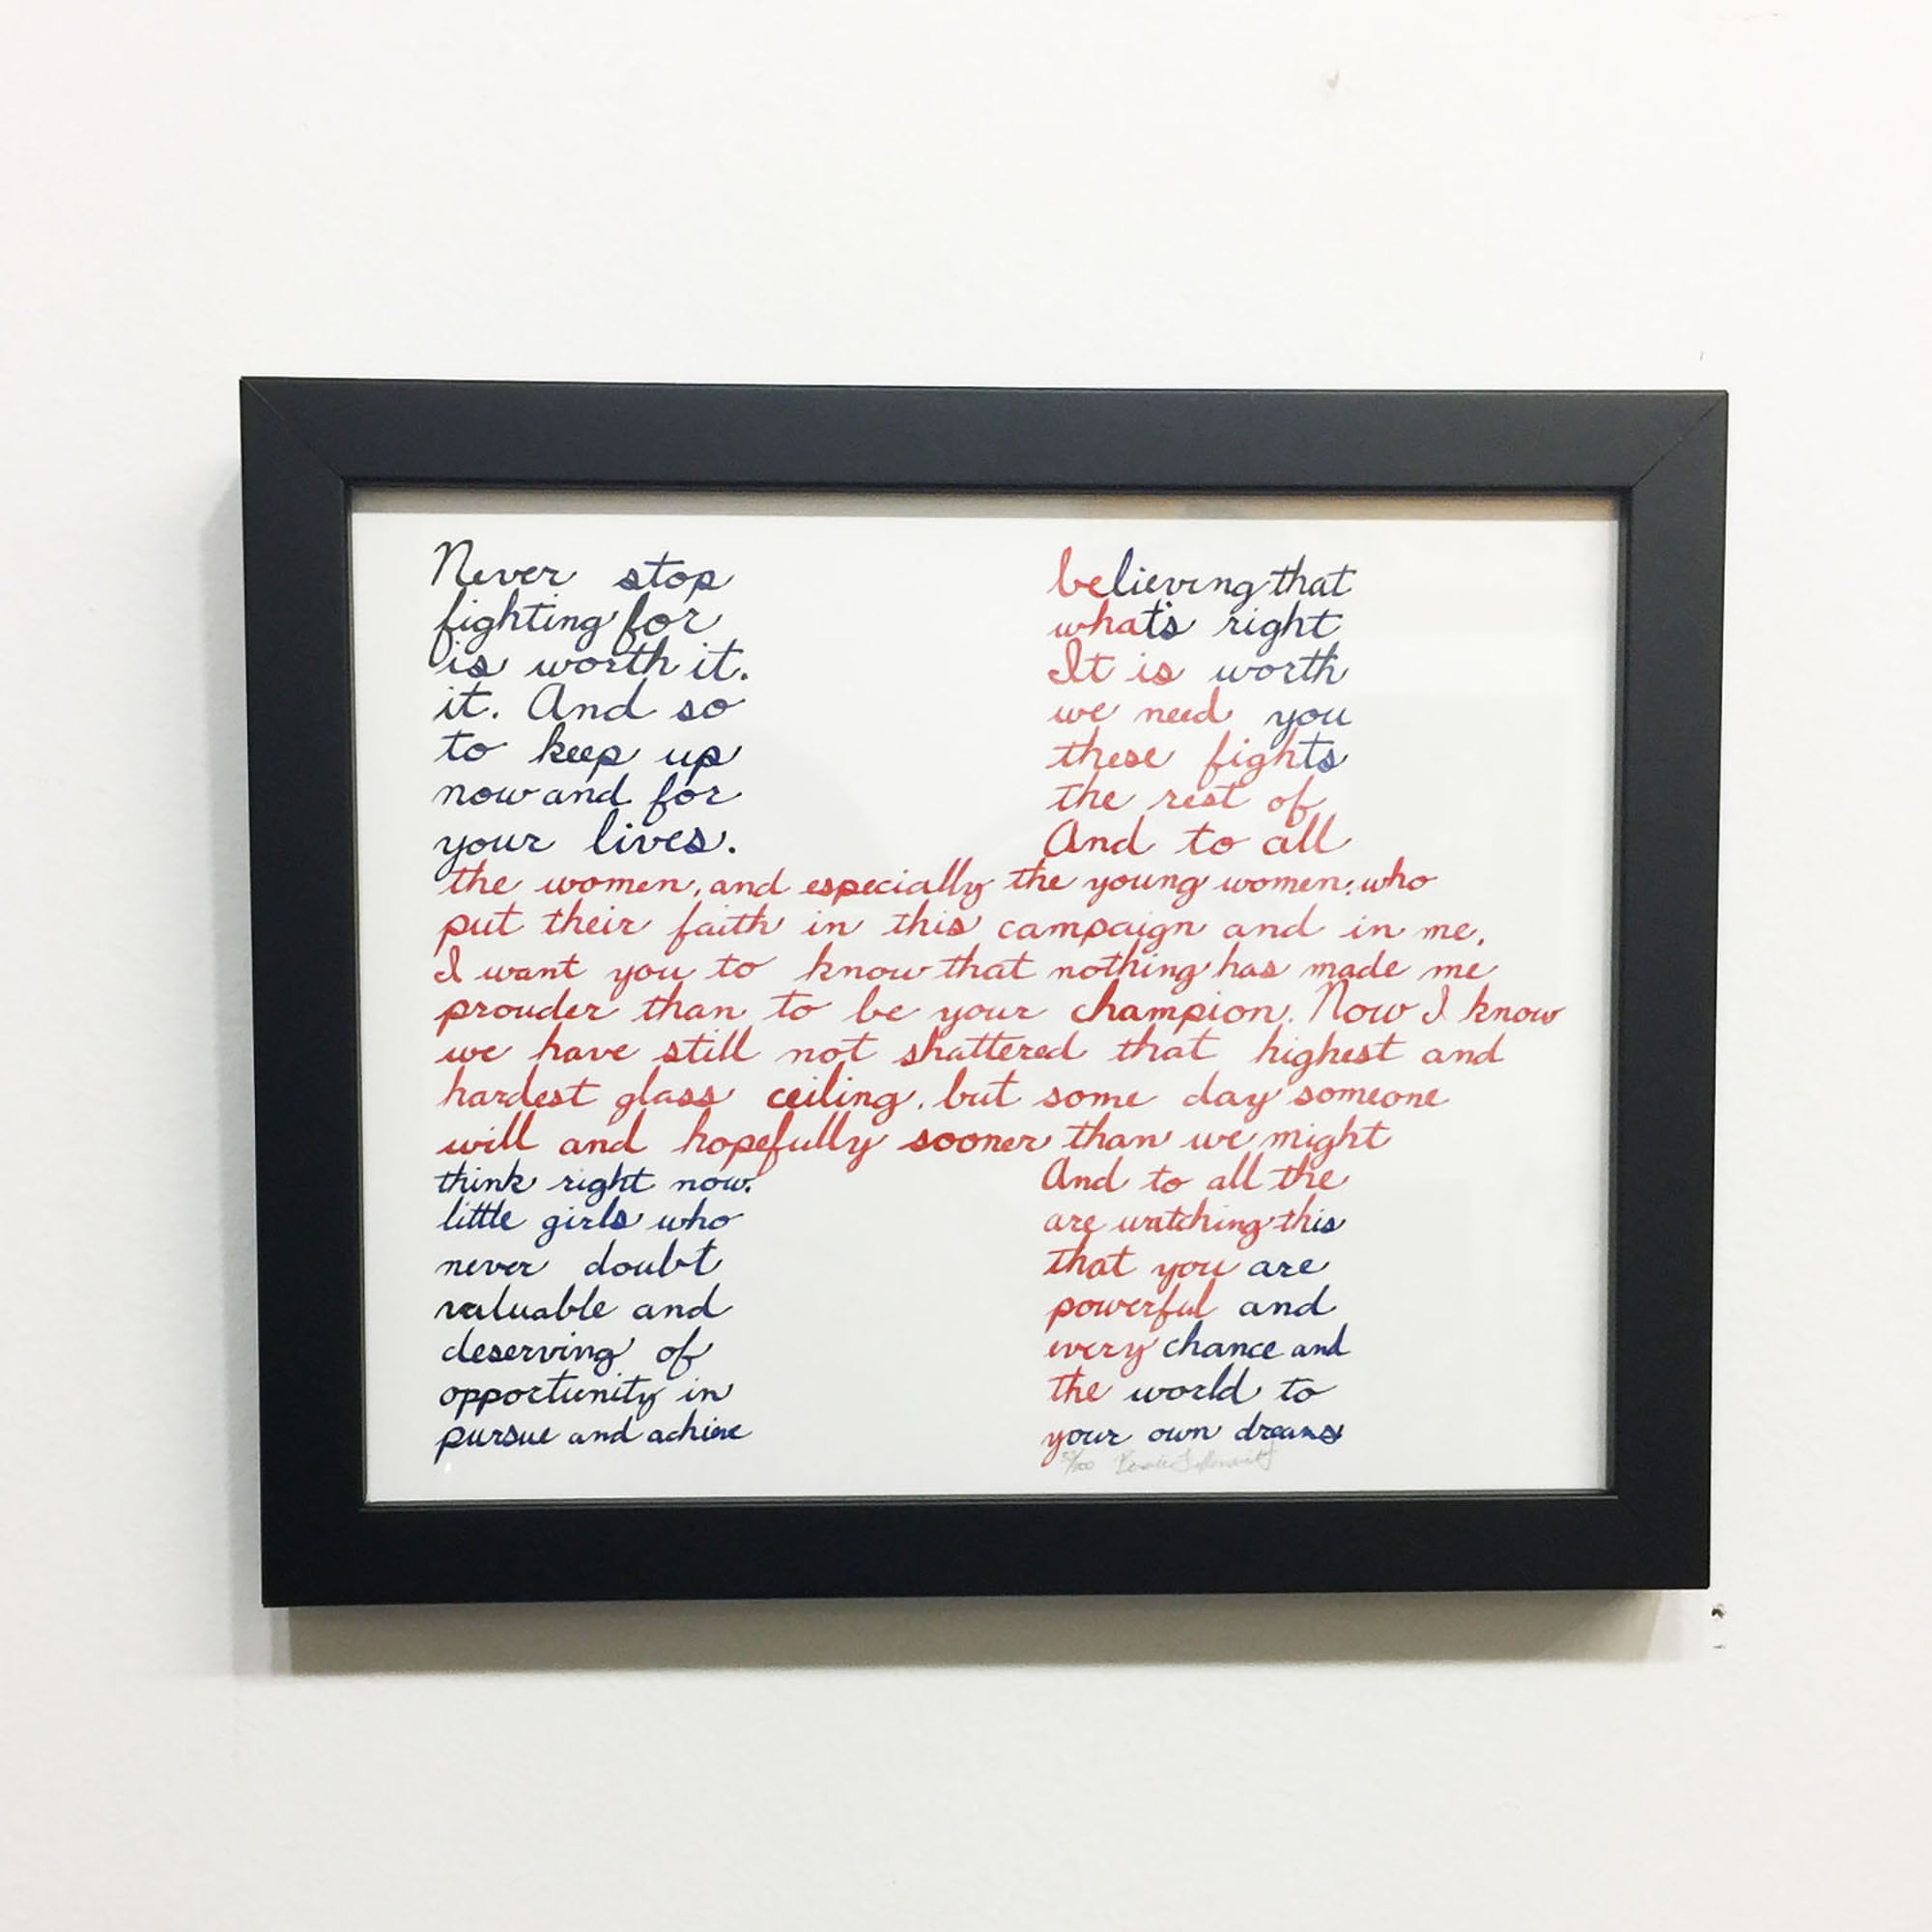 Never stop believing that
fighting for what's right
is worth it. It is worth
it. And so we need you
to keep up these fights
now and for the rest of
your lives. And to all
the women, and especially the young women, who
put their faith in this campaign and in me,
I want you to know that nothing has made me
prouder than to be your champion. Now I know
we have still not shattered that highest and
hardest glass ceiling, but some day someone
will and hopefully sooner than we might
think right now. And to all the
little girls who are watching this
never doubt that you are
valuable and powerful and
deserving of every chance and
opportunity in the world to
pursue and achieve your own dreams